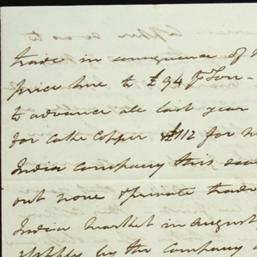 trade in consequence of
price here to £94 P Ton -
to advance ale last year
for cake Copper £112 for
India company this
out none private trade
India market in August
by the company